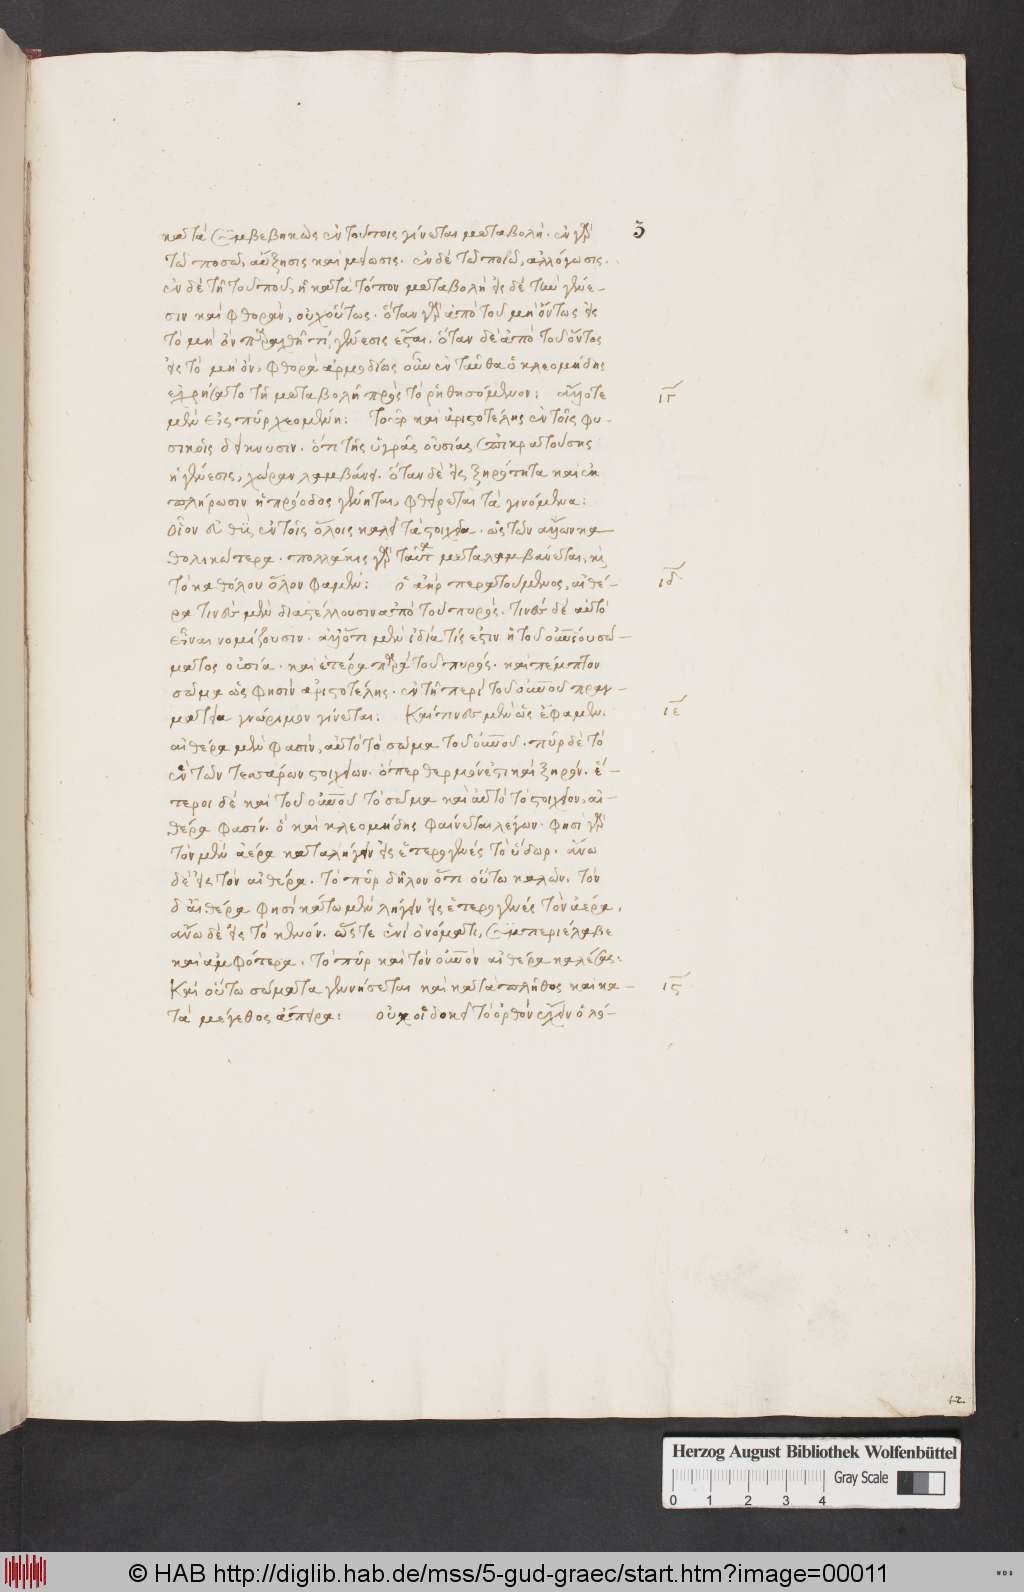 κατὰ συμβεβηκὼς ἐν τούτοις γίνεται μεταβολή. ἐν γὰρ
3
τῶ ποσῶ, αὔξησις καὶ μείωσις. ἐν δὲ τῶ ποιῶ, ἀλλοίωσις.
ἐν δὲ τῆ τοῦ ποῦ, ἡ κατὰ τόπον μεταβολὴ εἰς δὲ τὴν γένε-
σιν καὶ φθορὰν, οὐχ οὕτως. ὅταν γὰρ ἀπὸ τοῦ μὴ ὄντως εἰς
τὸ μὴ ὂν γένεσις ἔσται. ὅταν δὲ ἀπὸ τοῦ ὄντος
εἰς τὸ μὴ ὂν, φθορά ἁρμοδίως οὖν ἐνταῦθα ὁ κλεομήδης
ἐχρήσατο τῆ μεταβολῆ πρὸς τὸ ῥηθησόμενον: ἄλλοτε
ιγ
μὲν εἰς πῦρ χεομένη: καὶ ἀριστοτέλης ἐν τοῖς φυ-
σικοῖς δείκνυσιν. ὅτι τῆς ὑγρᾶς οὐσίας ἐπικρατούσης
ἡ γένεσις, χώραν λαμβάνει. ὅταν δὲ εἰς ξηρότητα καὶ ἐκ
πλήρωσιν ἡ πρόοδος γένηται, φθείρεται τὰ γινόμενα:
οἷον ἐν τοῖς ὅλοις καλεῖ τὰ στοιχεῖα. ὡς τῶν ἄλλων κα
θολικώτερα. πολλάκις γὰρ ταῦτα μεταλαμβάνεται, καὶ
τὸ καθόλου ὅλον φαμέν: ὁ ἀὴρ περατούμενος, αἰθέ-
ιδ
ρα τινὲς μὲν διαστέλλουσιν ἀπὸ τοῦ πυρός. τινὲς δὲ αὐτὸ
εἶναι νομίζουσιν. ἀλλ' ὅτι μὲν ἰδία τίς ἐστιν ἡ τοῦ οὐνίου σώ-
ματος οὐσία. καὶ ἑτέρα παρὰ τοῦ πυρός. καὶ πέμπτον
σῶμα ὡς φησὶν ἀριστοτέλης. ἐν τῆ περὶ τοῦ οὐνοῦ πραγ-
ματεία γνώριμον γίνεται: Καί τινες μὲν ὡς ἔφαμεν.
ιε
αἰθέρα μὲν φασὶν, αὐτὸ τὸ σῶμα τοῦ οὐνοῦ. πῦρ δὲ τὸ
ἐκ τῶν τεσσάρων στοιχείων. ὅπερ θερμόν ἐστι καὶ ξηρόν. ἕ-
τεροι δὲ καὶ τοῦ οὐνοῦ τὸ σῶμα καὶ αὐτὸ τὸ στοιχεῖον, αἰ-
θέρα φασίν. ὃ καὶ κλεομήδης φαίνεται λέγων. φησὶ γὰρ
τὸν μὲν ἀέρα καταλήγειν εἰς ἑτερογενὲς τὸ ὕδωρ. ἄνω
δὲ εἰς τὸν αἰθέρα. τὸ πῦρ δῆλον ὅτι οὕτω καλῶν. τὸν
δ' αἰθέρα φησὶ κάτω μὲν λήγειν εἰς ἑτερογενὲς τὸν ἀέρα.
ἄνω δὲ εἰς τὸ κενόν. ὥστε ἑνὶ ὀνόματι, συμπεριέλαβε
καὶ ἀμφότερα. τὸ πῦρ καὶ τὸν οὐνὸν αἰθέρα καλέσας:
Καὶ οὕτω σώματα γεννήσεται καὶ κατὰ πλῆθος καὶ κα-
ιϛ
τὰ μέγεθος ἄπειρα: οὔ μοι δοκεῖ τὸ ὀρθὸν ἔχειν ὁ λό-
12
Herzog August Bibliothek Wolfenbüttel
0 1 2 3 4
Gray Scale
© HAB http://diglib.hab.de/mss/5-gud-graec/start.htm?image=00011